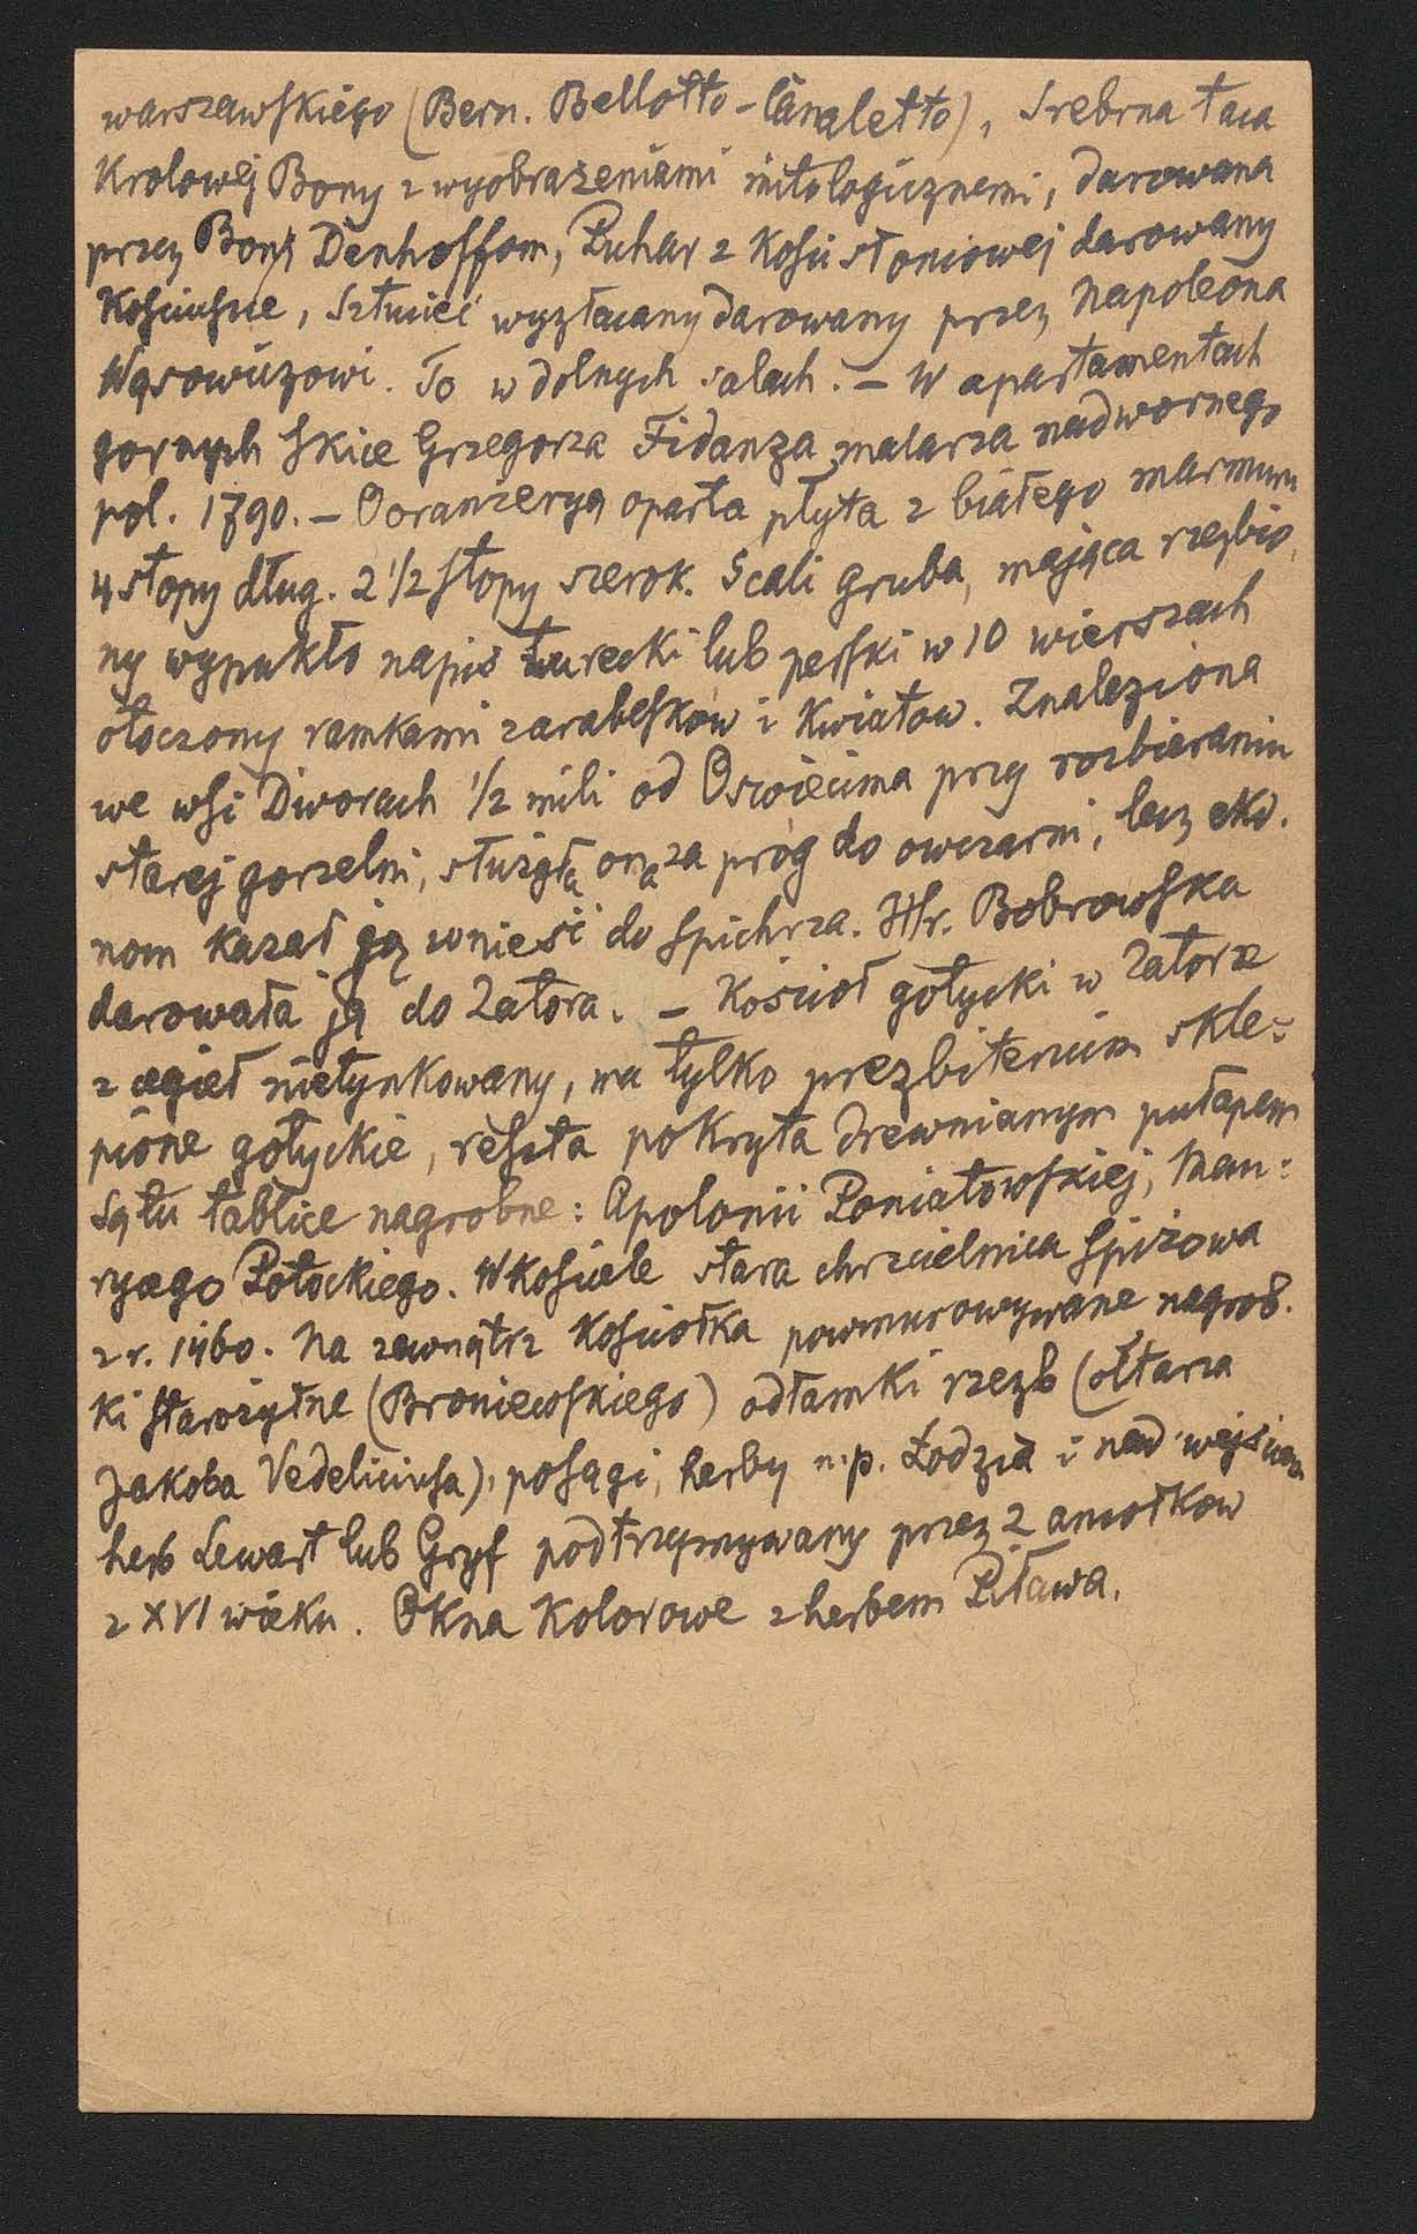 warszawskiego (Bern. Bellotto - Canaletto), Srebrna taca
Krolowej Bony z wyobrażeniami mitologicznemi, darowana
przez Bonę Denhoffom, Puhar z Kości słoniowej darowany
Kościuszce, Sztuciec wyzłacany darowany przez Napoleona
Wąsowiczowi. To w dolnych salach. – W apartamentach
gornych szkice Grzegorza Fidanza malarza nadwornego
pol. 1790. – O oranżeryą oparta płyta z białego marmuru
4 stopy dług. 2 1/2 stopy szerok. 5 cali gruba, mająca rzeźbio
ny wypukło napis turecki lub perski w 10 wierszach
otoczony ramkami z arabesków i Kwiatow. Znaleziona
we wsi Dworach 1/2 mili od Oswiecima przy rozbieraniu
starej gorzelni, służyła ona za próg do owczarni, lecz eko.
nom kazał ją wnieść do spichrza. Hr. Bobrowska
darowała ją do Zatora. – Kosciół gotycki w Zatorze
z cegieł nietynkowany, ma tylko prezbiterium skle=
pione gotyckie, reszta pokryta drewnianym pułapem
Są tu tablice nagrobne: Apolonii Poniatowskiej, Mau=
rycego Potockiego. W Kościele stara chrzcielnica spiżowa
z r. 1460. Na zewnątrz Kosciołka powmurowywane nagrob.
ki starożytne (Broniewskiego) odłamki rzezb (ołtarza
Jakoba Vedeliciusa), posągi, herby n.p. Łodzia i nad wejściem
herb Lewart lub Gryf podtrzymywany przez 2 aniołkow
z XVI wieku. Okna Kolorowe z herbem Piława.